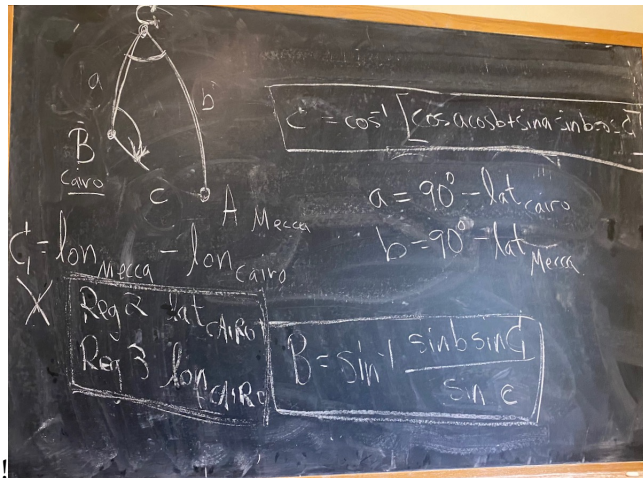 C
a
b
B
Cairo
c
A Mecca
c = cos⁻¹ [cosacosb+sinasinbcosC]
a = 90° - lat cairo
b = 90° - lat Mecca
C = lon Mecca - lon Cairo
X
Reg 2 lat CAIRO
Reg 3 lon CAIRO
B = sin⁻¹ sinb sinC
sin c
!